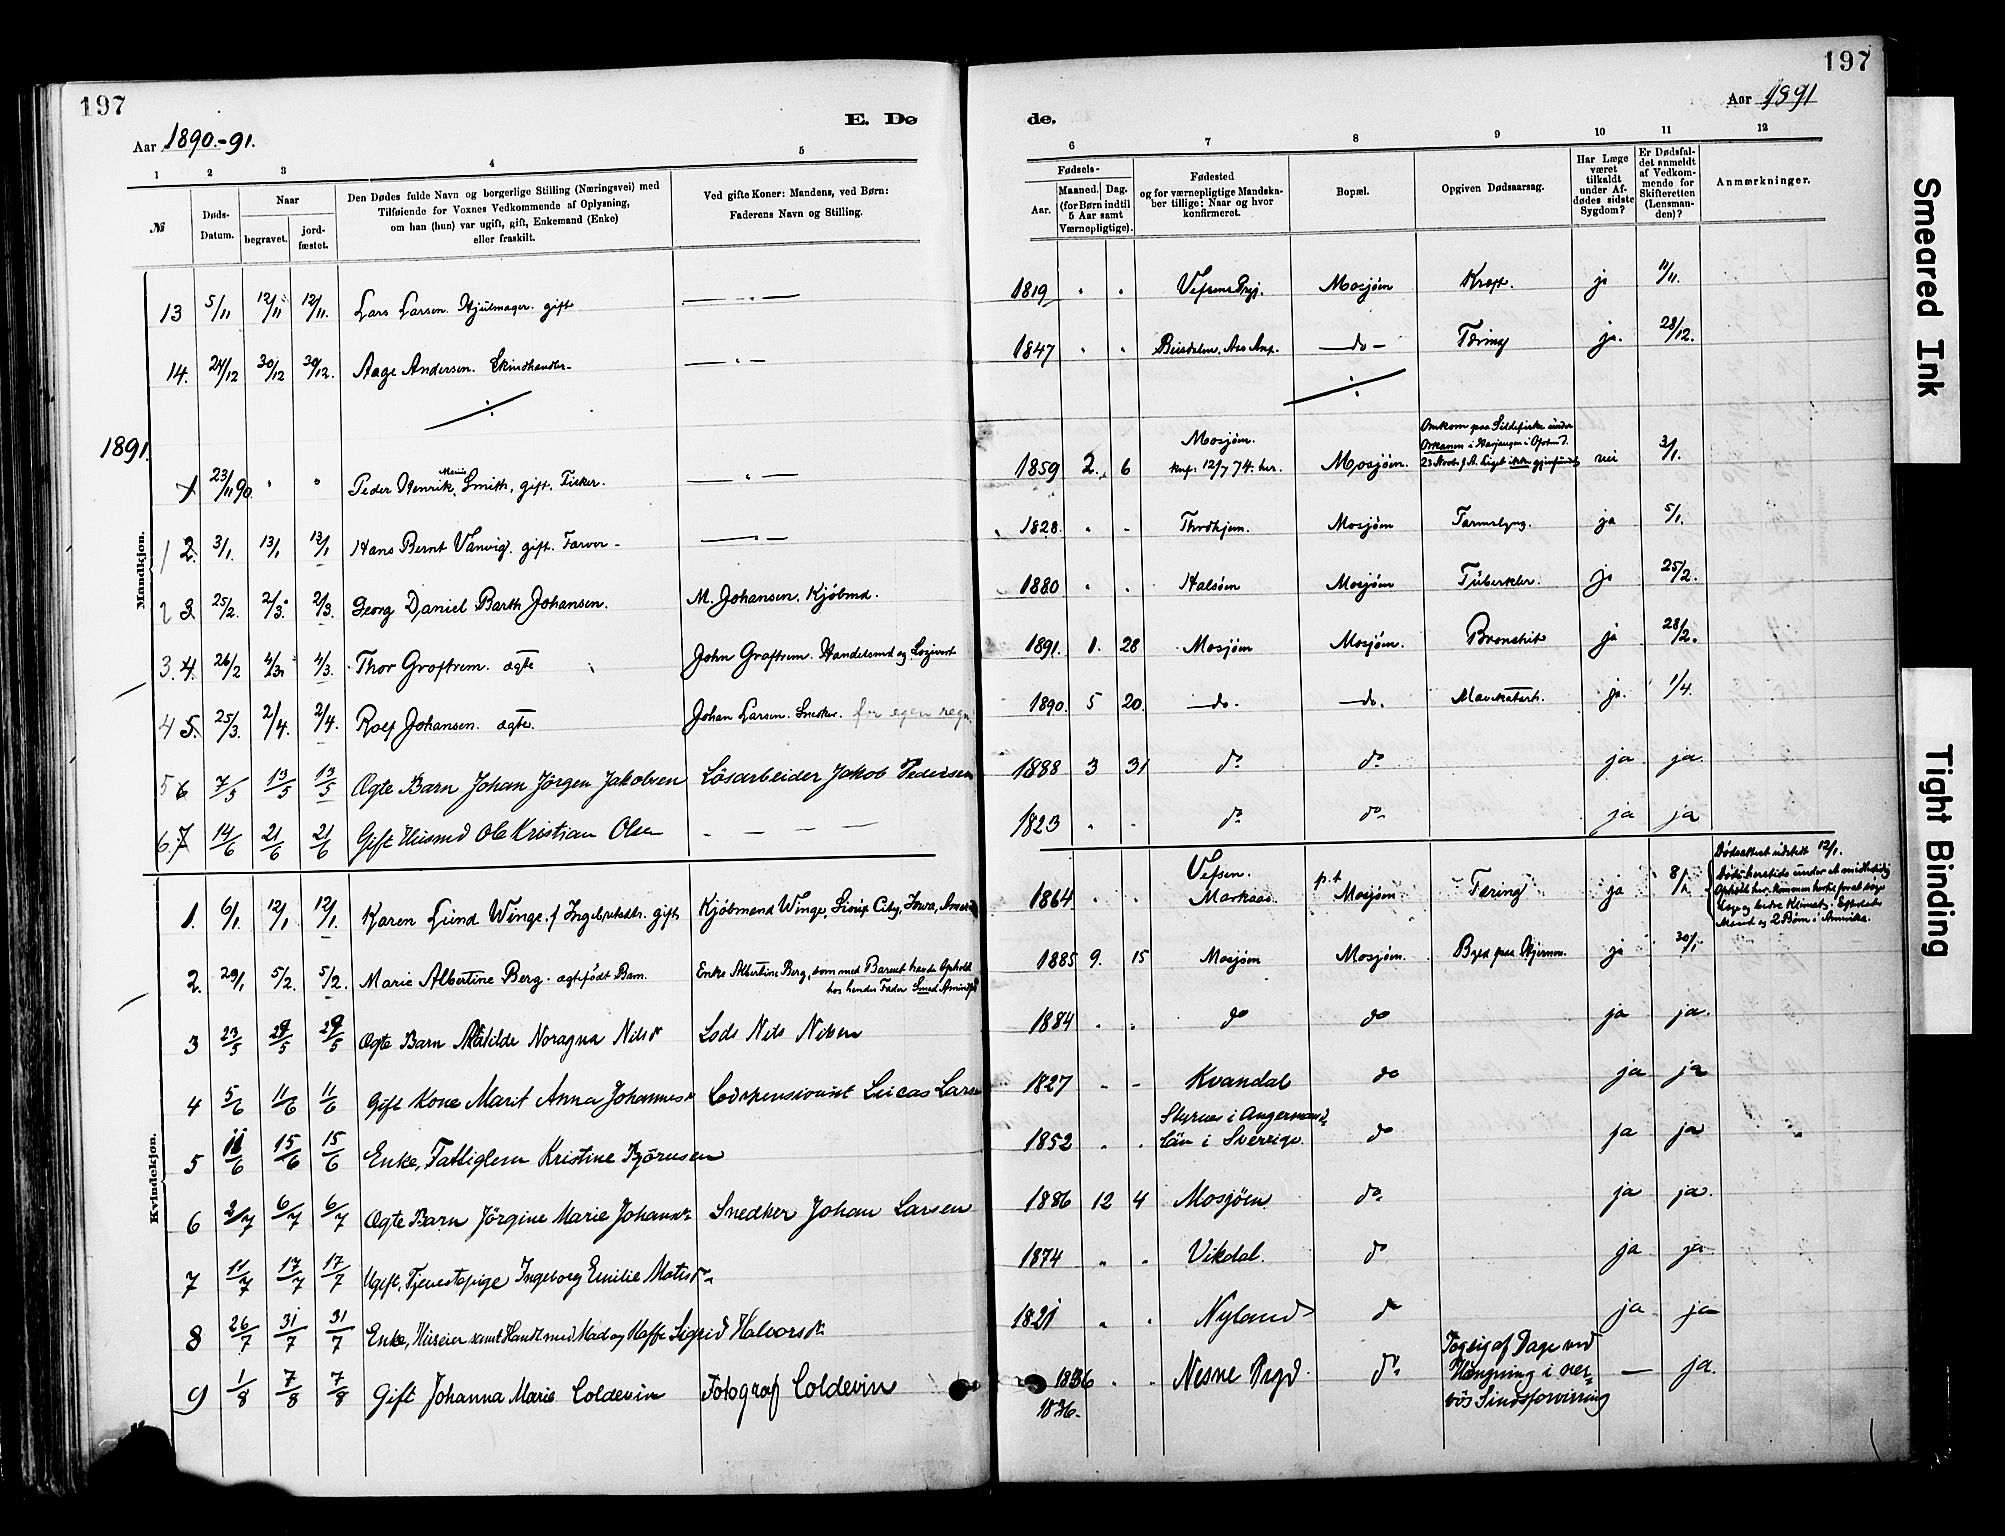 197
Aar 1890.-91.
E. Dø
1 2 3 4 5
№
Døds-
Datum.
Naar
begravet.
jord-
fæstet.
Den Dødes fulde Navn og borgerlige Stilling (Næringsvei) med
Tilføiende for Voxnes Vedkommende af Oplysning,
om han (hun) var ugift, gift, Enkemand (Enke)
eller fraskilt.
Ved gifte Koner: Mandens, ved Børn:
Faderens Navn og Stilling.
13 5/11 12/11 12/11. Lars Larsen. Hjulmager. gift
14. 24/12 30/12 30/12. Aage Andersen. Skindhandler-
1891.
Mandkjøn.
1 23/11 90 " " Peder Henrik Marius Smith, gift. Fisker.
1 2. 3/1. 13/1 13/1 Hans Bernt Vanvig. gift. Farver -
2 3. 25/2. 2/3. 2/3. Georg Daniel Barth Johansen. M. Johansen, Kjøbmd.
3. 4. 26/2 4/3. 4/3. Thor Graftrem. ægte John Graftrem. Handelsmd og Logivert
4 5. 25/3. 2/4. 2/4. Rolf Johansen. ægte. Johan Larsen. Snedker. for egen regn.
5 6 7/5 13/5 13/5 Ægte Barn Johan Jörgen Jakobsen Lösarbeider Jakob Pedersen
6. 7 14/6 21/6 21/6 Gift Husmd Ole Kristian Olsen
Kvindekjøn.
1. 6/1. 12/1 12/1. Karen Lund Winge. f Ingebrigtsdtr. gift Kjöbmand Winge, Sioux City, Iowa, Amerika
2. 29/1 5/2. 5/2. Marie Albertine Berg. ægtefødt Barn. Enke Albertine Berg, som med Barnet havde Ophold
hos hendes Fader Smed
3 23/5 29/5 29/5 Ægte Barn Matilde Noragna Nilsdr Lods Nils Nilsen
4 5/6 11/6 11/6 Gift Kone Marit Anna Johannesdr Lodspensionist Lucas Larsen
5 11/6 15/6 15/6 Enke, Fattiglem Kristine Björnsen
6 2/7 6/7 6/7 Ægte Barn Jörgine Marie Johansdr Snedker Johan Larsen
7 11/7 17/7 17/7 Ugift, Tjenestepige Ingeborg Emilie Matisdr
8 26/7 31/7 31/7 Enke, Huseier samt Handl med Mad og Kaffe Sigrid Halvorsdr
9 1/8 7/8 7/8 Gift Johanna Marie Coldevin Fotograf Coldevin
197
Aar 1891
de.
6 7 8 9 10 11 12
Fødsels-
Aar.
Maaned. Dag.
(for Børn indtil
5 Aar samt
Værnepligtige).
Fødested
og for værnepligtige Mandska-
ber tillige: Naar og hvor
konfirmeret.
Bopæl.
Opgiven Dødsaarsag.
Har Læge
været
tilkaldt
under Af-
dødes sidste
Sygdom?
Er Dødsfal-
det anmeldt
af Vedkom-
mende for
Skifteretten
(Lensman-
den)?
Anmærkninger.
1819 " " Vefsens Prgj. Mosjöen Kræft. ja 11/11.
1847 " " -do- Tæring ja. 28/12.
Omkom paa Sildefiske under
Mosjöen. Orkanen i
1859 2. 6 knf. 12/7 74. her. Mosjöen. 23 Novb. f A. Liget ikke gjenfundet nei 3/1.
1828. " - Throhjem. Mosjöen ja 5/1.
1880 " " Halsöen Mosjöen Tuberkler. ja 25/2.
1891. 1. 28 Mosjöen Mosjöen. Bronchit ja 28/2.
1890. 5 20. -do- -do. Mavekatarh. ja. 1/4.
1888 3 31 do do ja ja
1823 " " do do ja ja
1864 " " Vefsen. Markaas. p.t Mosjöen. Tæring ja 8/1
Dødsattest udstedt 12/1.
1885 9. 15 Mosjöen Mosjöen. Byld paa Hjernen. ja 30/1
1884 " " do do ja ja.
1827 " - Kvandal do ja ja
Styrnes i Angermanl.
1852 " " Län i Sverrige. do ja ja
1886 12 4 Mosjöen do ja ja.
1874 " " Vikdal. do ja ja
1821 " " Nyland do ja ja
1836 " " Nesne Prgd. do
1836.
Hængning i ner-
vös Sindsforvirring
— ja.
Smeared Ink
Tight Binding